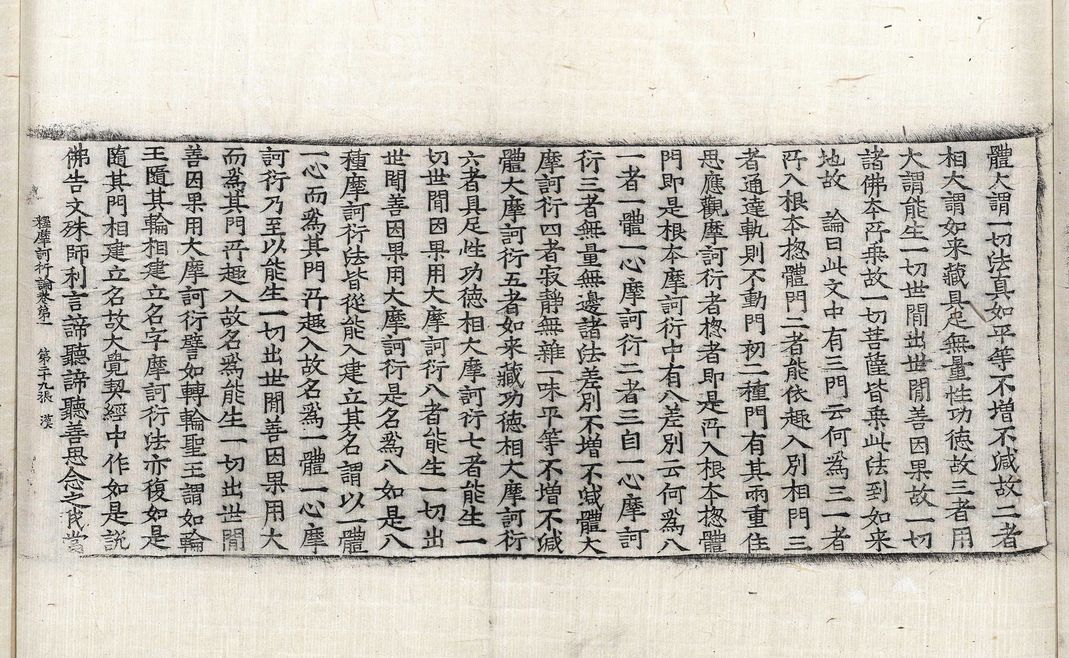 體大謂一切法真如平等不増不减故二者
相大謂如来藏具足無量性功德故三者用
大謂能生一切世閒出世閒善因果故一切
諸佛夲𠩄乗故一切菩薩皆乗此法到如来
地故　論曰此文中有三門云何爲三一者
𠩄入根本揔體門二者能依趣入別相門三
者通達軌則不動門初二種門有其兩重住
思應觀摩訶衍者揔者即是𠩄入根本揔體
門即是根本摩訶衍中有八差別云何爲八
一者一體一心摩訶衍二者三自一心摩訶
衍三者無量無邊諸法差別不增不减體大
摩訶衍四者寂靜無雜一味平等不増不减
體大摩訶衍五者如来藏功德相大摩訶衍
六者具足性功德相大摩訶衍七者能生一
切世間因果用大摩訶衍八者能生一切出
世閒善因果用大摩訶衍是名爲八如是八
種摩訶衍法皆從能入建立其名謂以一體
一心而爲其門𠩄趣入故名爲一體一心摩
訶衍乃至以能生一切出世閒善因果用大
而爲其門𠩄趣入故名爲能生一切出世閒
善因果用大摩訶衍譬如轉輪聖王謂如輪
王隨其輪相建立名字摩訶衍法亦復如是
隨其門相建立名故大覺契經中作如是說
佛告文殊師利言諦聽諦聽善思念之我當
釋摩訶衍論卷第一　第二十九張　漢